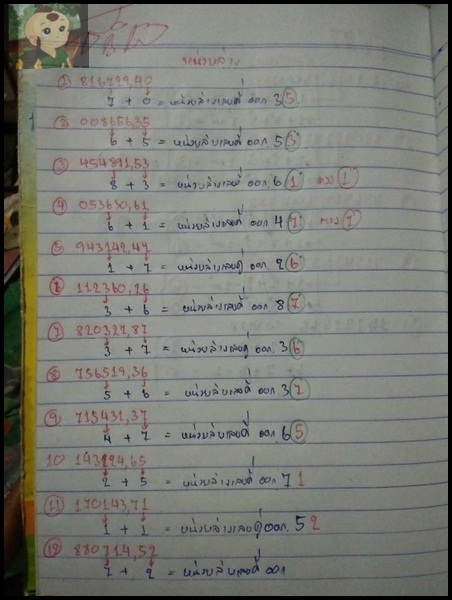 หน่วยล่าง
① 816729,40
7 + 0 = หน่วยล่างเลขคี่ ออก 35
② 008656,35
6 + 5 = หน่วยล่างเลขคี่ ออก 53
③ 454891,53
8 + 3 = หน่วยล่างเลขคี่ ออก 61 1
④ 053630,61
6 + 1 = หน่วยล่างเลขคี่ ออก 47 7
⑤ 943142,47
1 + 7 = หน่วยล่างเลขคู่ ออก 26
112360,26
3 + 6 = หน่วยล่างเลขคี่ ออก 87
⑦ 820327,87
3 + 7 = หน่วยล่างเลขคู่ ออก 36
⑧ 756519,36
5 + 6 = หน่วยล่างเลขคี่ ออก 37
⑨ 715431,37
4 + 7 = หน่วยล่างเลขคี่ ออก 65
10 143224,65
2 + 5 = หน่วยล่างเลขคี่ ออก 71
⑪ 170143,71
1 + 1 = หน่วยล่างเลขคู่ ออก 52
⑫ 880714,52
7 + 2 = หน่วยล่างเลขคี่ ออก